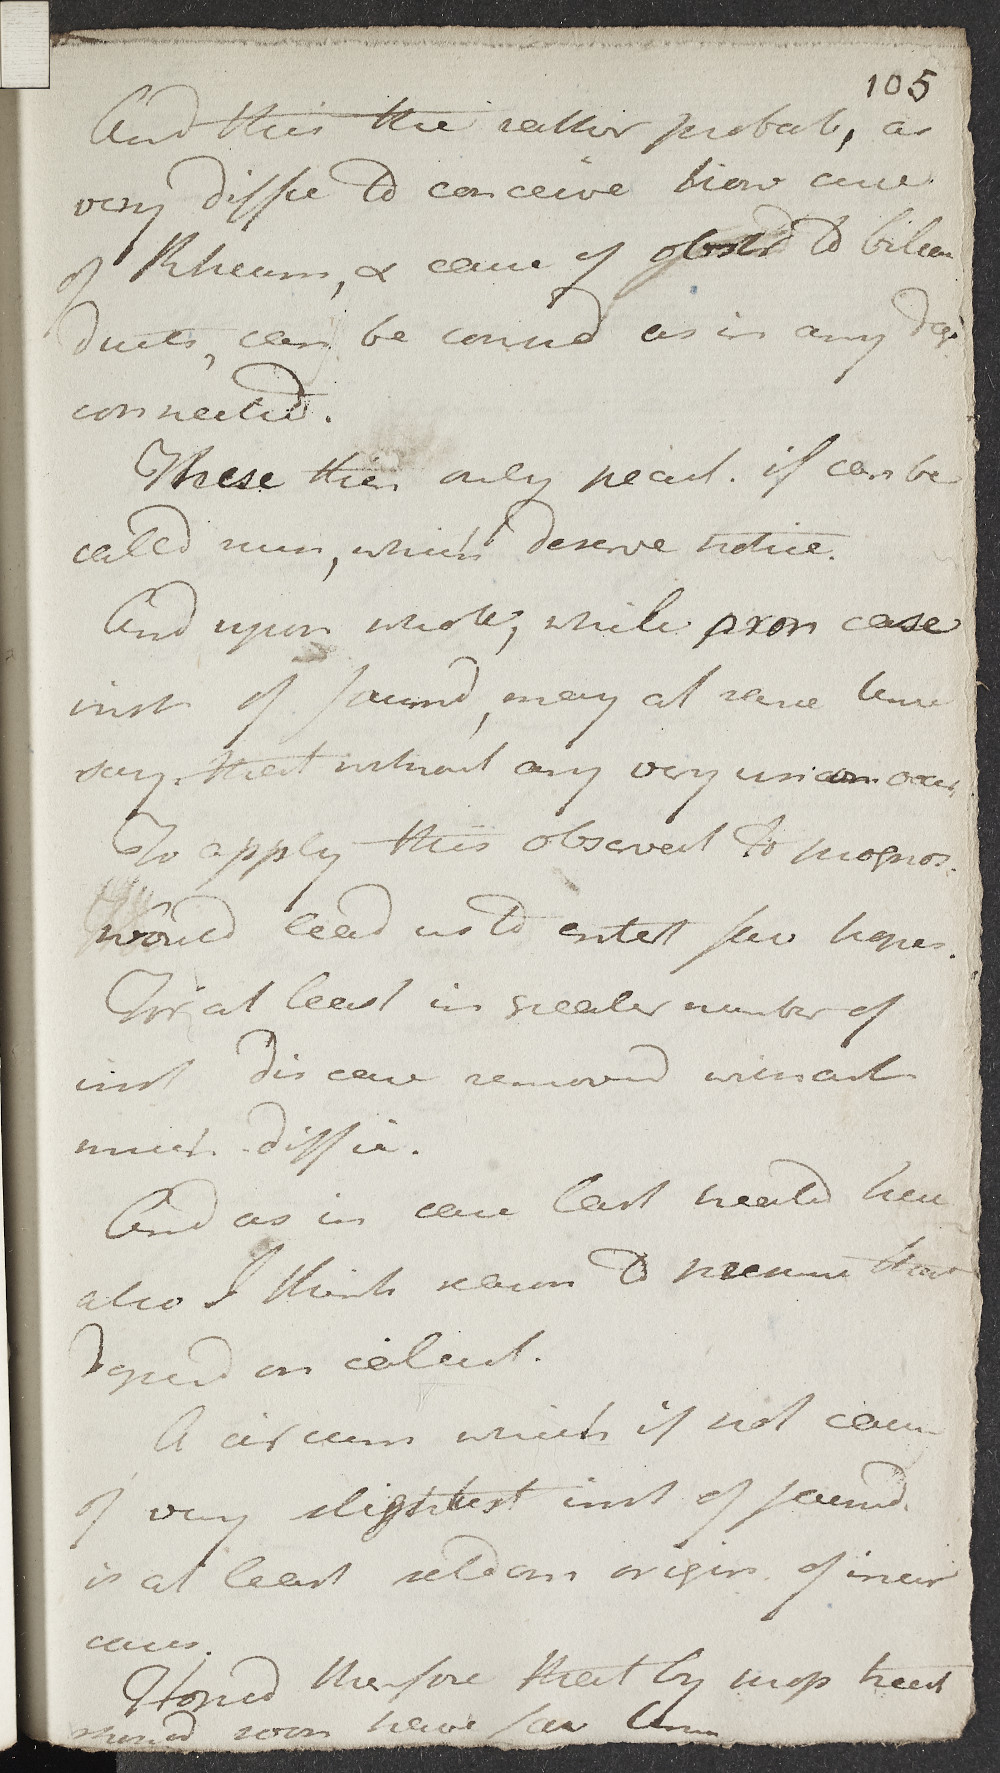 105
And this the rather probab, as
very diffic to conceive how caus
of Rheum, & caus of obstr to bilia
ducts, can be conned as in any deg
connected.
These then only pecul. if can be
called num, which deserve notice.
And upon whole, while pron case
inst of Jaund, may at same time
say. that without any very uncom occur,
To apply this observat to prognos.
would lead us to entert fav hopes.
For at least in greater number of
inst disease removed without
much diffic.
And as in case last treated here
also I think reason to presum that
depend on calcul.
A circum which if not caus
of very slightest inst of Jaund.
is at least seldom origin of incur
cases.
Hoped therefore that by prop treat
should soon have fav term